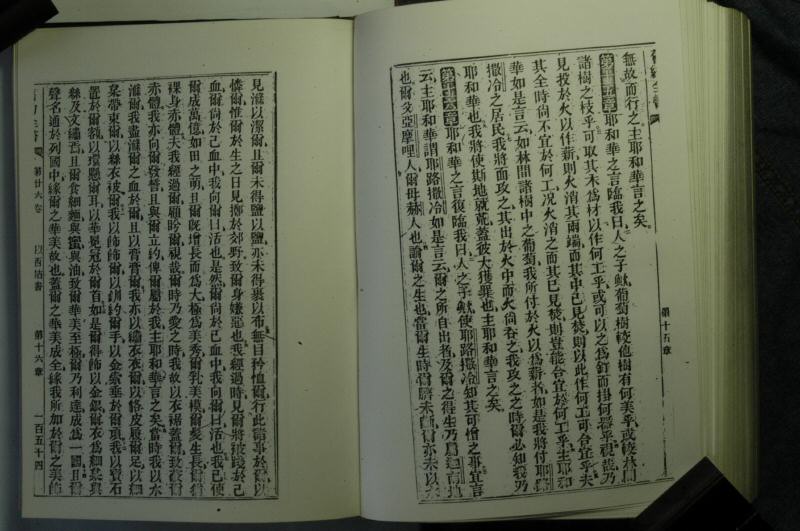 舊約全書
第十五章
無故而行之主耶和華言之矣
第十五章耶和華之言臨我曰人之子歟葡萄樹較他樹有何美乎或較林間
諸樹之枝乎可取其木為材以作何工乎或可以之為釘而掛何器乎視哉乃
見投於火以作薪則火消其兩端而其中已見焚則以此作何工可合宜乎夫
其全時尚不宜於何工况火消之而其已見焚則豈能合宜於何工乎主耶和
華如是言云如林間諸樹中之葡萄我所付於火以為薪者如是我將付耶路
撒冷之居民我將面攻之其出於火中而火尚吞之我攻之之時爾必知我乃
耶和華也我將使斯地就荒蓋彼大獲罪也主耶和華言之矣
第十六章耶和華之言復臨我曰人之子歟使耶路撒冷知其可憎之事宜言
云主耶和華謂耶路撒冷如是言云爾之所自出者及爾之得生乃為迦南地
也爾父亞摩哩人爾母赫人也論爾之生也當爾生時爾臍未斷爾亦未以水
見滌以潔爾且爾未得鹽以鹽亦未得裹以布無目矜恤爾行此諸事於爾以
憐爾惟爾於生之日見擲於郊野致爾身嫌惡也我經過時見爾將被踐於己
血爾尚於己血中我向爾曰活也是然爾尚於己血中我向爾曰活也我已使
爾成萬億如田之萌且爾既增長而為大極為美秀爾乳美模爾髮生長爾嘗
裸身赤體夫我經過爾顧盼爾視哉爾時乃愛之時我故以衣裾蓋爾致蔽爾
赤體我亦向爾發誓且與爾立約俾爾屬於我主耶和華言之矣當時我以水
滌爾我盡滌爾之血於爾且以膏膏爾我亦以繡衣衣爾以貉皮履爾足以細
枲帶束爾以絲衣被爾我以飾飾爾以釧約爾手以金索垂於爾項我以寶石
置於爾額以環懸爾耳以華冕冠於爾首如是爾得飾以金銀爾衣為細枲與
絲及文繡者且爾食細麵與蜜與油致爾華美至極爾乃利達成為一國且爾
聲名通於列國中緣爾之華美故也蓋爾之華美成全緣我所加於爾之美飾
第廿六卷 以西結書 第十六章 一百五十四